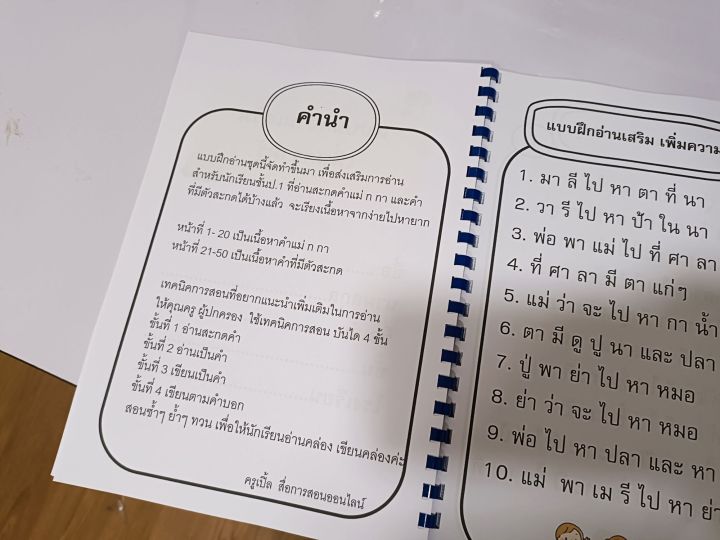 คำนำ
แบบฝึกอ่านชุดนี้จัดทำขึ้นมา เพื่อส่งเสริมการอ่าน
สำหรับนักเรียนชั้นป.1 ที่อ่านสะกดคำแม่ ก กา และคำ
ที่มีตัวสะกดได้บ้างแล้ว จะเรียงเนื้อหาจากง่ายไปหายาก
หน้าที่ 1- 20 เป็นเนื้อหาคำแม่ ก กา
หน้าที่ 21-50 เป็นเนื้อหาคำที่มีตัวสะกด
เทคนิคการสอนที่อยากแนะนำเพิ่มเติมในการอ่าน
ให้คุณครู ผู้ปกครอง ใช้เทคนิคการสอน บันได 4 ขั้น
ขั้นที่ 1 อ่านสะกดคำ
ขั้นที่ 2 อ่านเป็นคำ
ขั้นที่ 3 เขียนเป็นคำ
ขั้นที่ 4 เขียนตามคำบอก
สอนซ้ำๆ ย้ำๆ ทวน เพื่อให้นักเรียนอ่านคล่อง เขียนคล่องค่ะ
ครูเปิ้ล สื่อการสอนออนไลน์
แบบฝึกอ่านเสริม เพิ่มความ
1. มา ลี ไป หา ตา ที่ นา
2. วา รี ไป หา ป้า ใน นา
3. พ่อ พา แม่ ไป ที่ ศา ลา
4. ที่ ศา ลา มี ตา แก่ๆ
5. แม่ ว่า จะ ไป หา กา น้ำ
6. ตา มี ดู ปู นา และ ปลา
7. ปู่ พา ย่า ไป หา หมอ
8. ย่า ว่า จะ ไป หา หมอ
9. พ่อ ไป หา ปลา และ หา
10. แม่ พา เม รี ไป หา ย่า